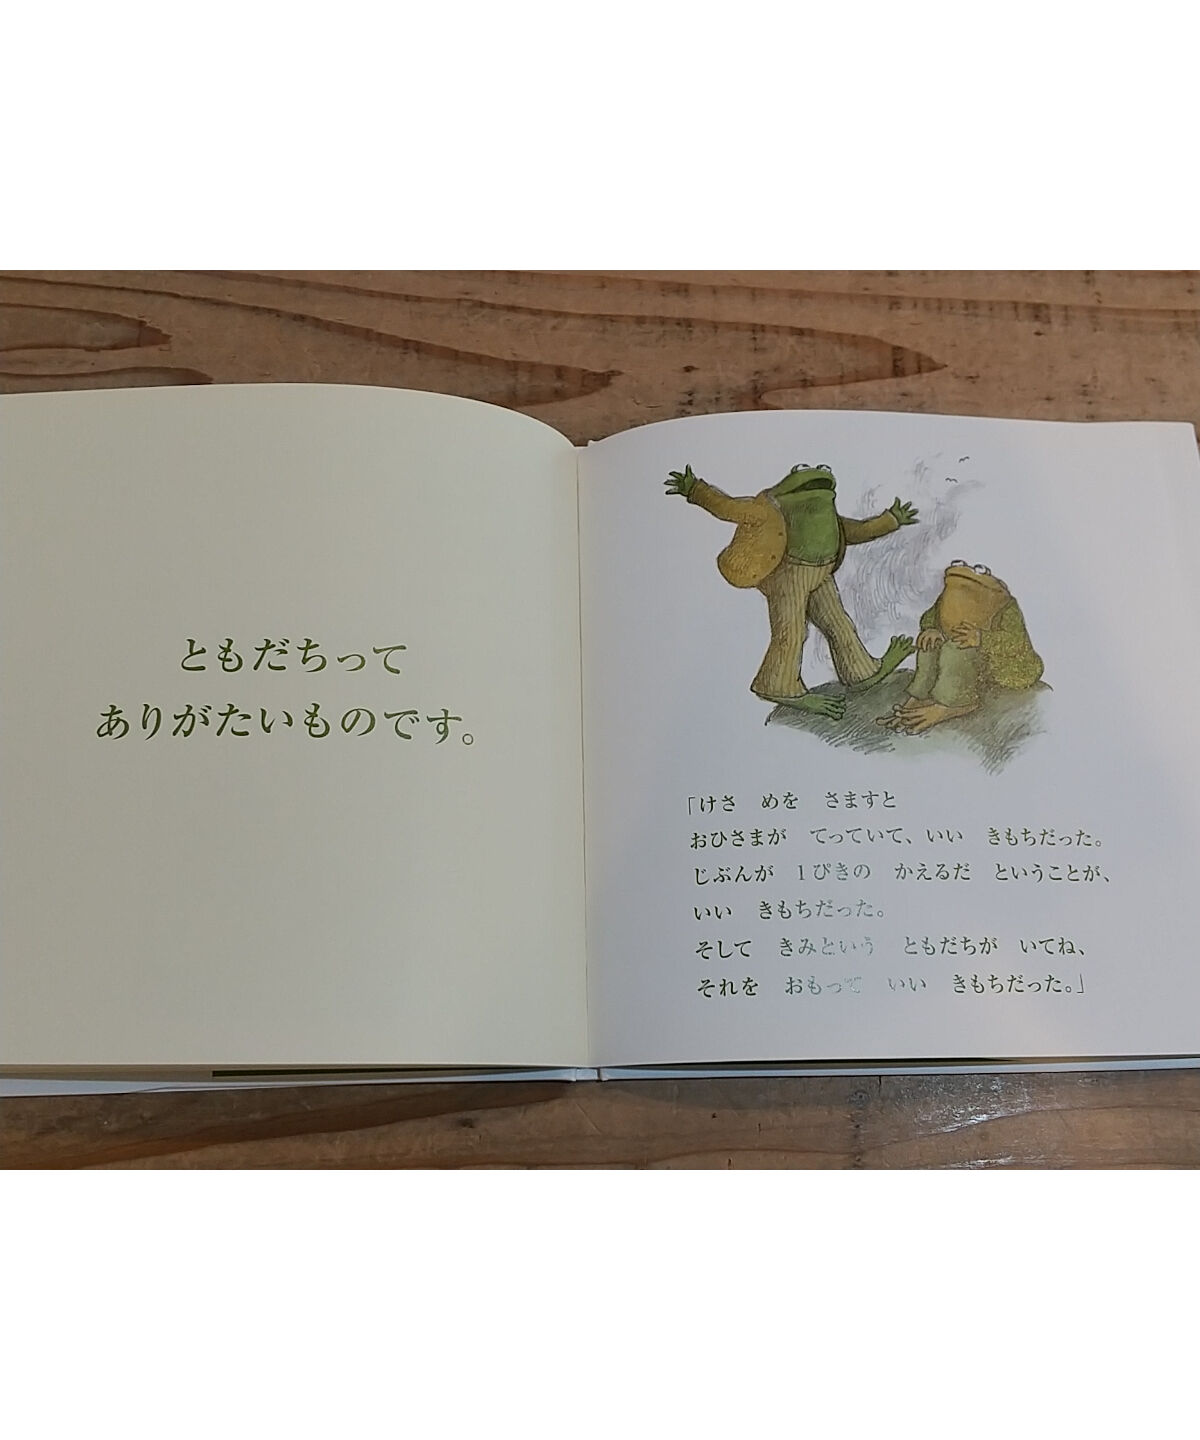 ともだちって
ありがたいものです。
「けさ　めを　さますと
おひさまが　てっていて、いい　きもちだった。
じぶんが　1ぴきの　かえるだ　ということが、
いい　きもちだった。
そして　きみという　ともだちが　いてね、
それを　おもって　いい　きもちだった。」